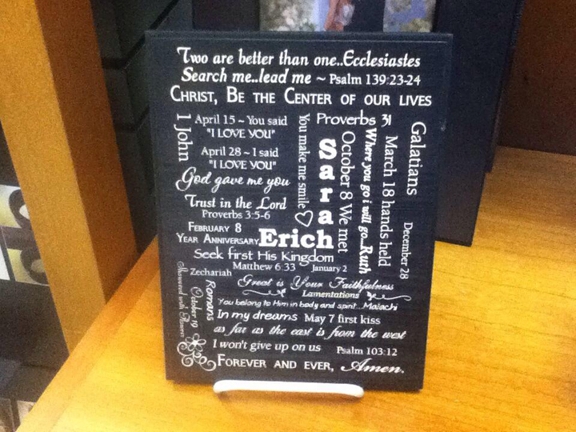 Two are better than one..Ecclesiastes
Search me..lead me ~ Psalm 139:23-24
CHRIST, BE THE CENTER OF OUR LIVES
1 John
April 15 ~ You said
"I LOVE YOU"
April 28 ~ I said
"I LOVE YOU"
God gave me you
Trust in the Lord
Proverbs 3:5-6
FEBRUARY 8
YEAR ANNIVERSARY
You make me smile ♡
Proverbs 31
Sara
Erich
October 8 We met
Where you go i will go...Ruth
March 18 hands held
Galatians
December 28
Seek first His Kingdom
Matthew 6:33
January 2
Zechariah
Great is Your Faithfulness
Lamentations
Romans
October 19
You belong to Him in body and spirit...Malachi
In my dreams
May 7 first kiss
as far as the east is from the west
I won't give up on us
Psalm 103:12
FOREVER AND EVER, Amen.